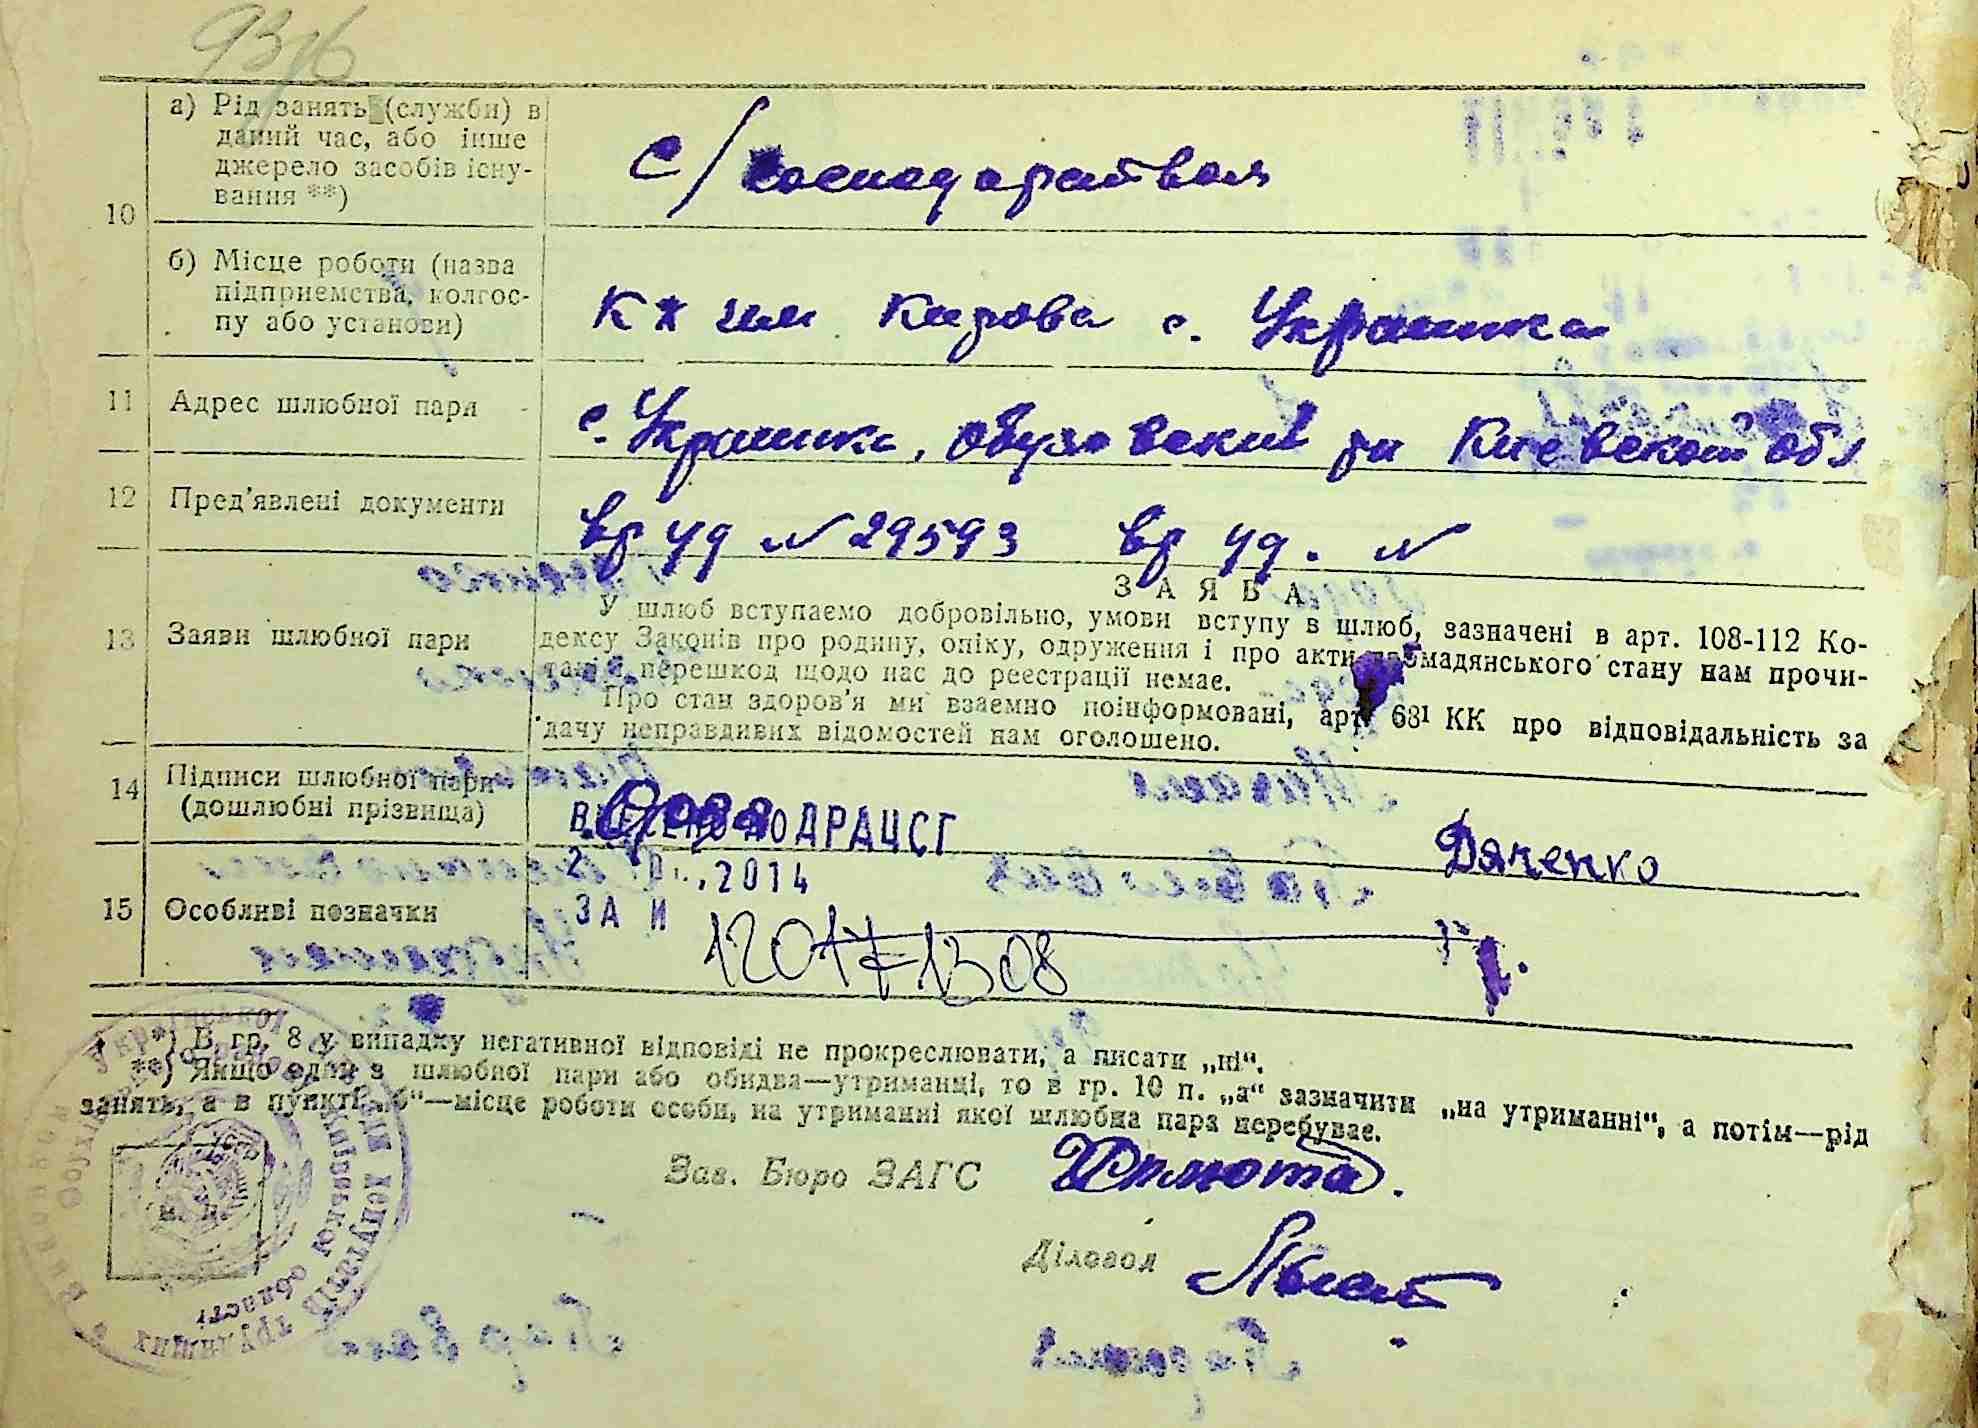 93/6
а) Рід занять (служби) в
даний час, або інше
джерело засобів існу-
вання **)
10
с/господарством
б) Місце роботи (назва
підприємства, колгос-
пу або установи)
к-х им Кирова с. Украинка
11 Адрес шлюбної пари
с. Украинка, Обуховский р-н Киевской обл
12 Пред'явлені документи
вр уд № 29593 вр уд. №
13 Заяви шлюбної пари
ЗАЯВА
У шлюб вступаємо добровільно, умови вступу в шлюб, зазначені в арт. 108-112 Ко-
дексу Законів про родину, опіку, одруження і про акти громадянського стану нам прочи-
тані й перешкод щодо нас до реєстрації немає.
Про стан здоров'я ми взаємно поінформовані, арт. 68¹ КК про відповідальність за
дачу неправдивих відомостей нам оголошено.
14 Підписи шлюбної пари
(дошлюбні прізвища)
ВНЕСЕНО ДО ДРАЦСГ
Дяченко
2014
15 Особливі позначки
ЗА
120171308
*) В гр. 8 у випадку негативної відповіді не прокреслювати, а писати „ні“.
**) Якщо один з шлюбної пари або обидва—утриманці, то в гр. 10 п. „а“ зазначити „на утриманні“, а потім—рід
занять, а в пункті „б“—місце роботи особи, на утриманні якої шлюбна пара перебуває.
Зав. Бюро ЗАГС
Діловод
М. П.